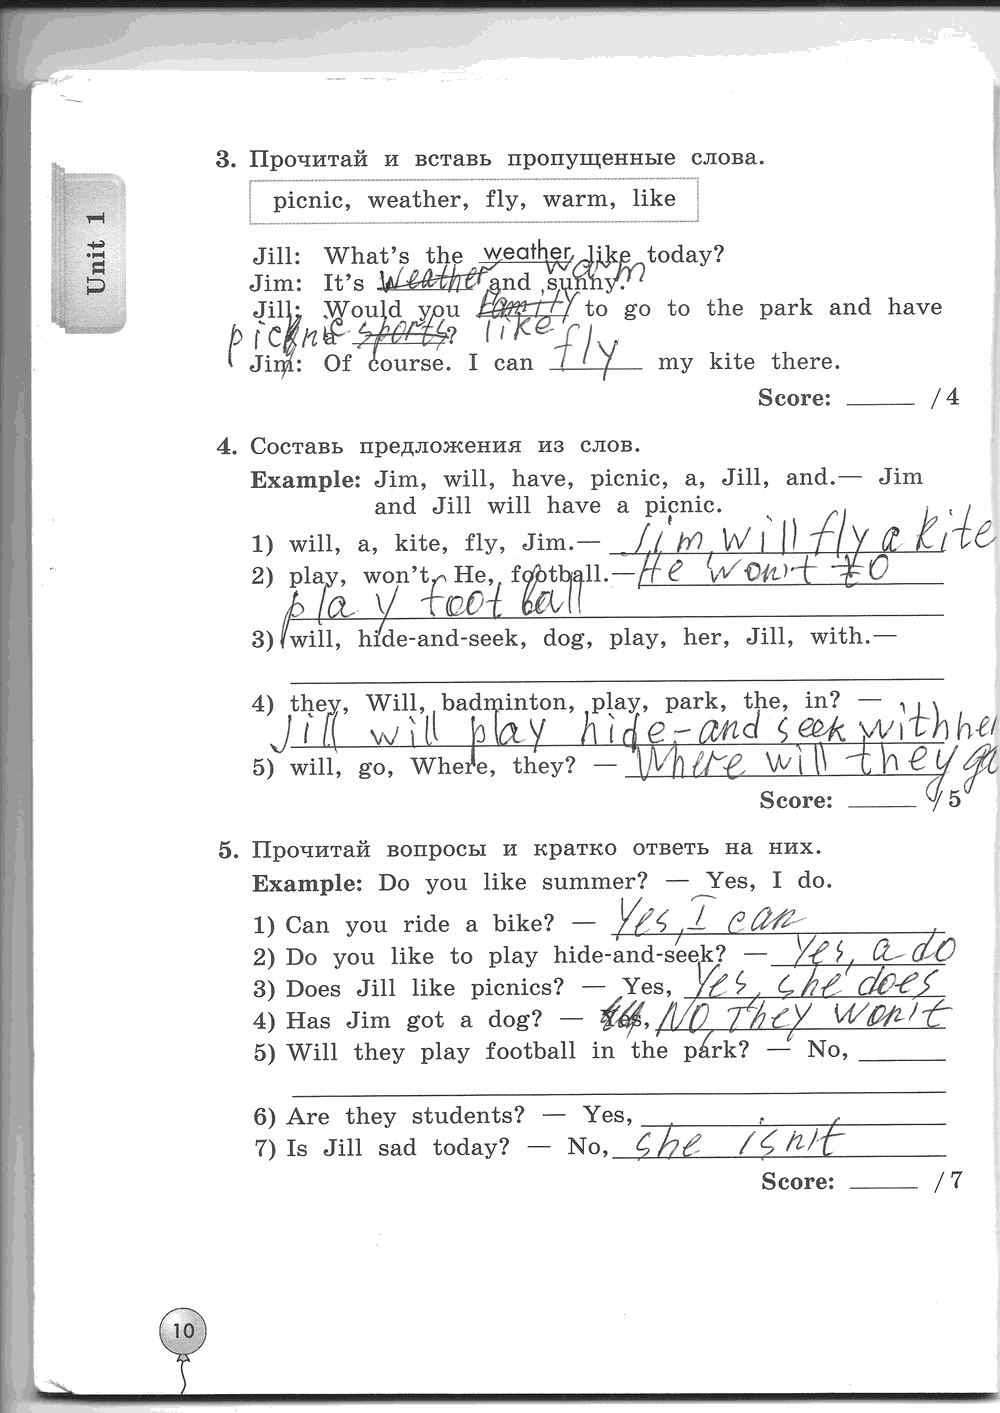 Unit 1
3. Прочитай и вставь пропущенные слова.
picnic, weather, fly, warm, like
Jill: What's the weather like today?
warm
Jim: It's weather and sunny.
Jill: Would you family to go to the park and have
picnic a sports? like
Jim: Of course. I can fly my kite there.
Score: _____ /4
4. Составь предложения из слов.
Example: Jim, will, have, picnic, a, Jill, and.— Jim
and Jill will have a picnic.
1) will, a, kite, fly, Jim.— Jim will fly a kite
2) play, won't, He, football.— He won't to
play football
3) will, hide-and-seek, dog, play, her, Jill, with.—
4) they, Will, badminton, play, park, the, in? —
Jill will play hide-and seek with her
5) will, go, Where, they? — Where will they go
Score: _____ /5
5. Прочитай вопросы и кратко ответь на них.
Example: Do you like summer? — Yes, I do.
1) Can you ride a bike? — Yes, I can
2) Do you like to play hide-and-seek? — Yes, a do
3) Does Jill like picnics? — Yes, Yes, she does
4) Has Jim got a dog? — Yes, NO, They won't
5) Will they play football in the park? — No, _____
6) Are they students? — Yes, _____
7) Is Jill sad today? — No, she isn't
Score: _____ /7
10